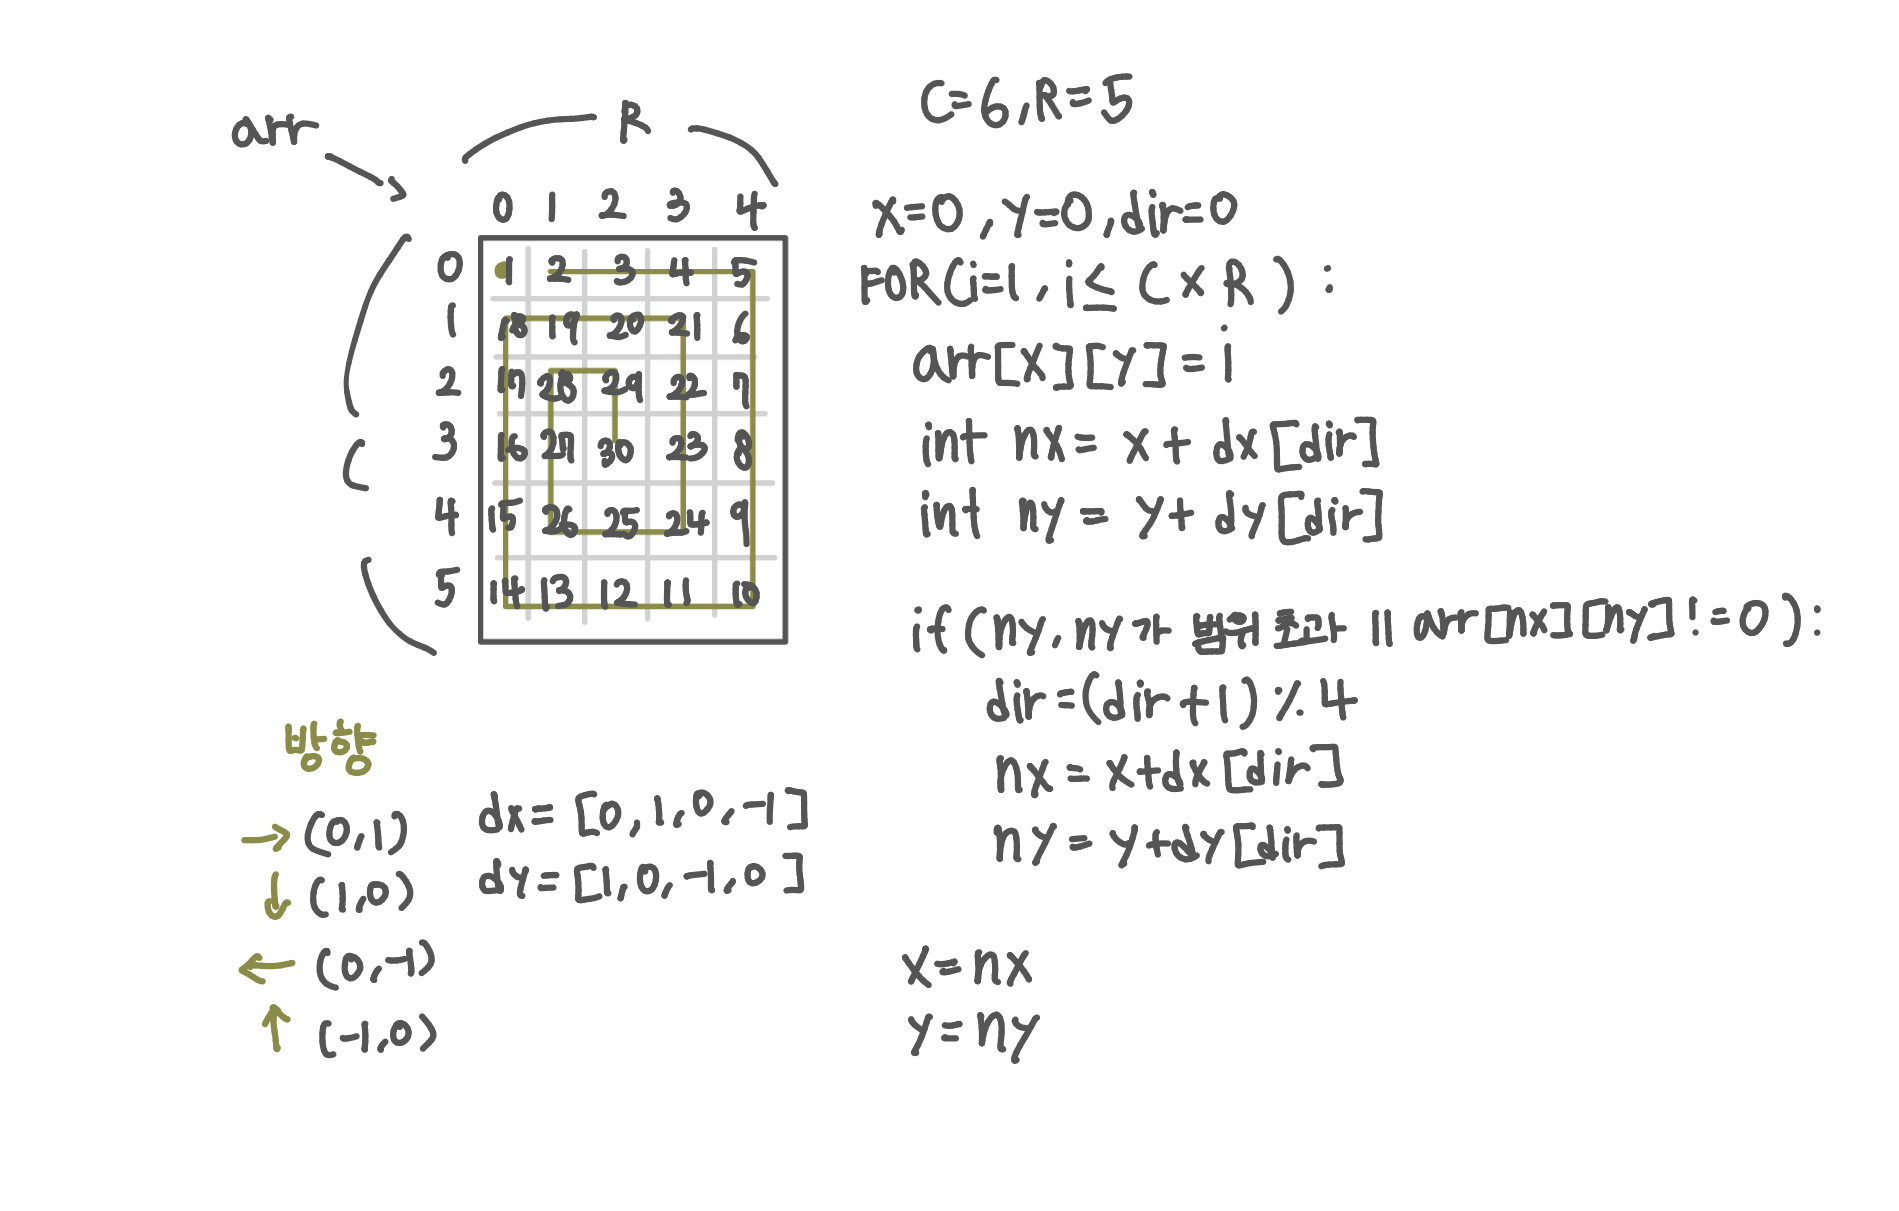 C=6,R=5
arr
R
0 1 2 3 4
0 1 2 3 4 5
1 18 19 20 21 6
2 17 28 29 22 7
3 16 27 30 23 8
C
4 15 26 25 24 9
5 14 13 12 11 10
x=0,y=0,dir=0
FOR(i=1,i≤C×R):
arr[x][y]=i
int nx=x+dx[dir]
int ny=y+dy[dir]
if(ny,ny가 범위 초과 || arr[nx][ny]!=0):
dir=(dir+1)%4
nx=x+dx[dir]
ny=y+dy[dir]
x=nx
y=ny
방향
→(0,1)
↓(1,0)
←(0,-1)
↑(-1,0)
dx=[0,1,0,-1]
dy=[1,0,-1,0]